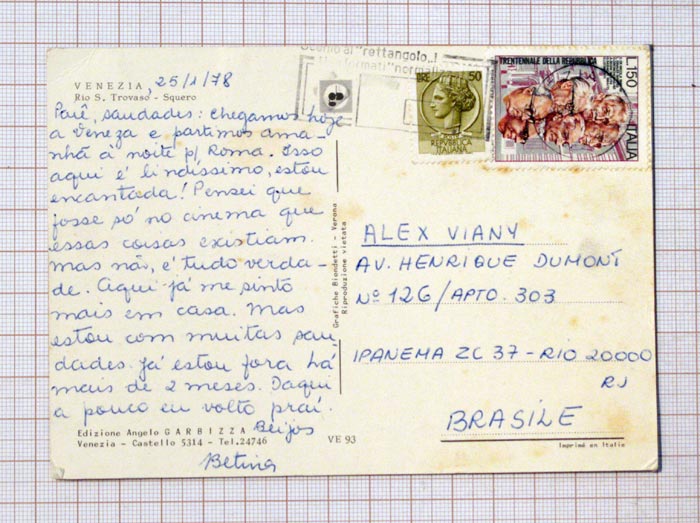 "rettangolo"
VENEZIA, 25/1/78
Rio S. Trovaso - Squero
Paiê, saudades: chegamos hoje
a Veneza e partimos ama-
nhã à noite p/ Roma. Isso
aqui é lindíssimo, estou
encantada! Pensei que
fosse só no cinema que
essas coisas existiam.
mas não, é tudo verda-
de. Aqui já me sinto
mais em casa. Mas
estou com muitas sau
dades. Já estou fora há
mais de 2 meses. Daqui
a pouco eu volto praí.
Beijos
Betina
Edizione Angelo GARBIZZA
Venezia - Castello 5314 - Tel.24746
VE 93
Grafiche Biondetti - Verona
Riproduzione vietata
50
REPUBBLICA
ITALIANA
TRENTENNALE DELLA REPUBBLICA
L150
ITALIA
ALEX VIANY
AV. HENRIQUE DUMONT
Nº 126/APTO. 303
IPANEMA ZC 37 - RIO 20000
RJ
BRASILE
Imprimé en Italie